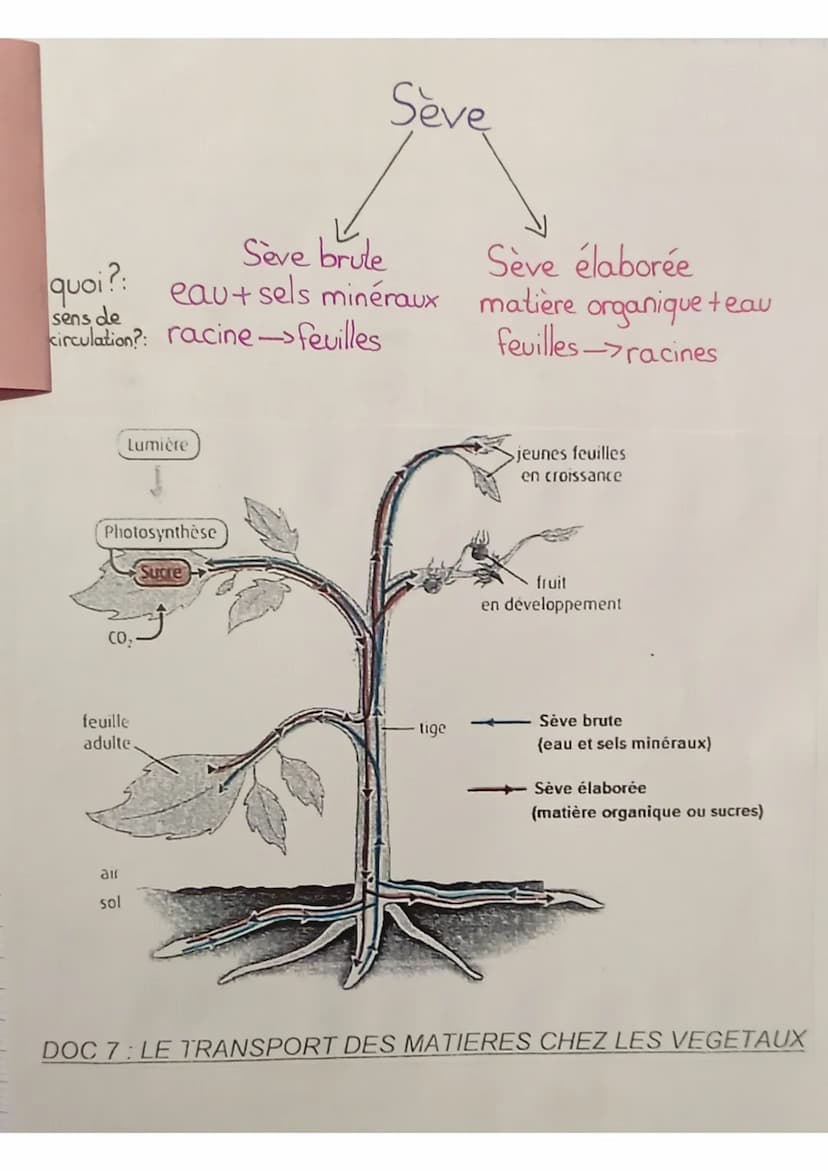 Sève
Sève brute
Sève élaborée
quoi?:
eau + sels minéraux
matière organique + eau
sens de
circulation?:
racine → feuilles
feuilles → racines
Lumière
jeunes feuilles
en croissance
Photosynthèse
Sucre
fruit
en développement
CO₂
feuille
adulte
tige
Sève brute
(eau et sels minéraux)
Sève élaborée
(matière organique ou sucres)
air
sol
DOC 7 : LE TRANSPORT DES MATIERES CHEZ LES VEGETAUX